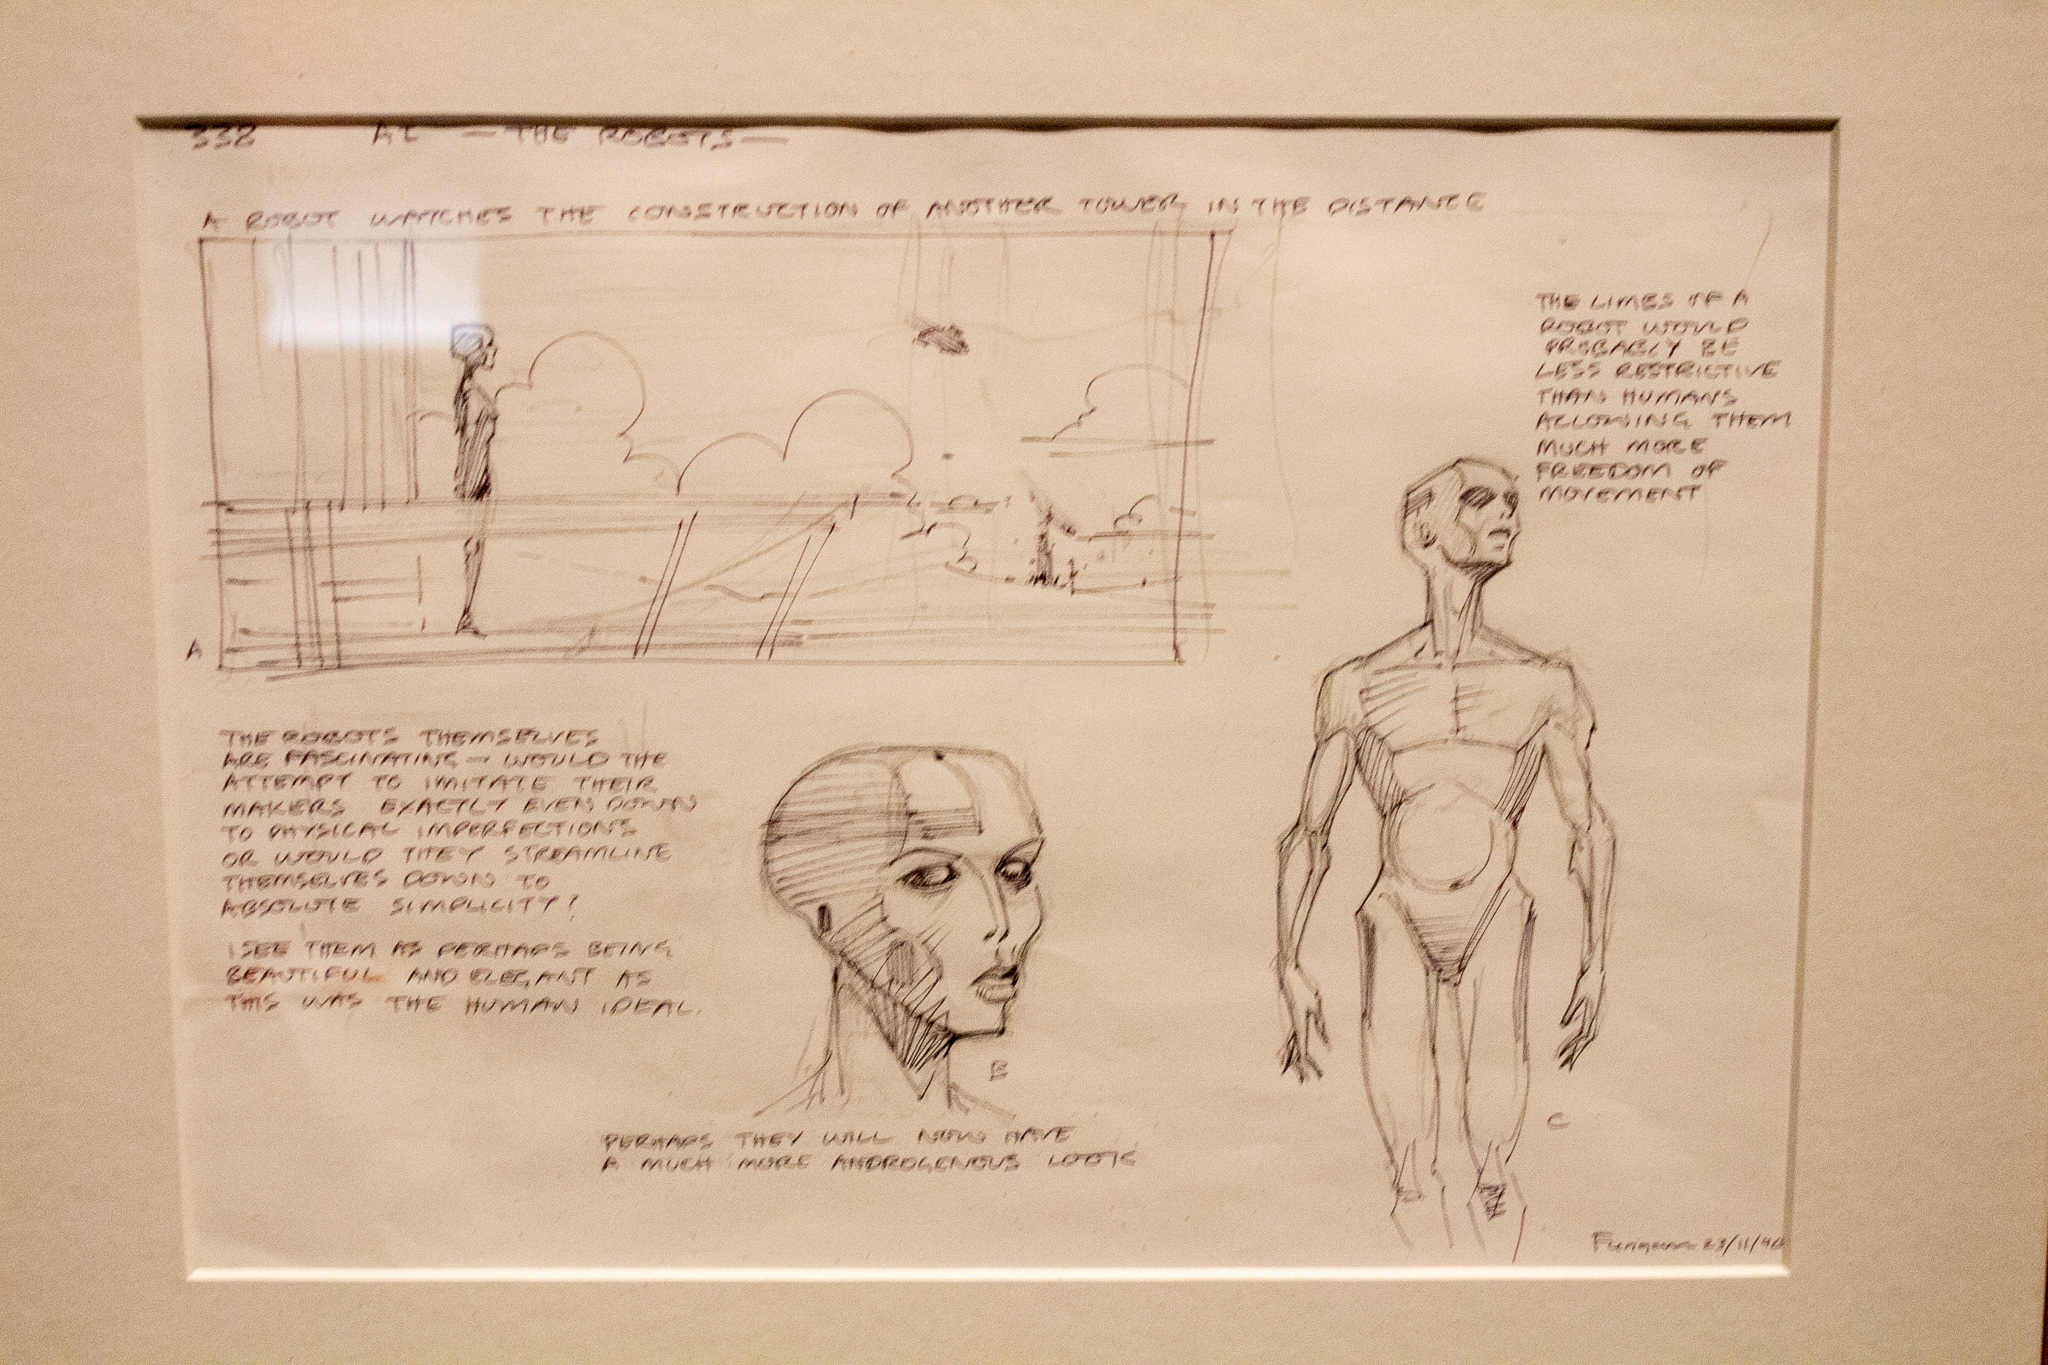 332 AI — THE ROBOTS —
A ROBOT WATCHES THE CONSTRUCTION OF ANOTHER TOWER IN THE DISTANCE
THE LIMBS OF A
ROBOT WOULD
PROBABLY BE
LESS RESTRICTIVE
THAN HUMANS
ALLOWING THEM
MUCH MORE
FREEDOM OF
MOVEMENT
A
THE ROBOTS THEMSELVES
ARE FASCINATING — WOULD THE
ATTEMPT TO IMITATE THEIR
MAKERS EXACTLY EVEN DOWN
TO PHYSICAL IMPERFECTIONS
OR WOULD THEY STREAMLINE
THEMSELVES DOWN TO
ABSOLUTE SIMPLICITY?
I SEE THEM AS PERHAPS BEING
BEAUTIFUL AND ELEGANT AS
THIS WAS THE HUMAN IDEAL.
B
PERHAPS THEY WILL NOW HAVE
A MUCH MORE ANDROGENOUS LOOK
C
23/11/